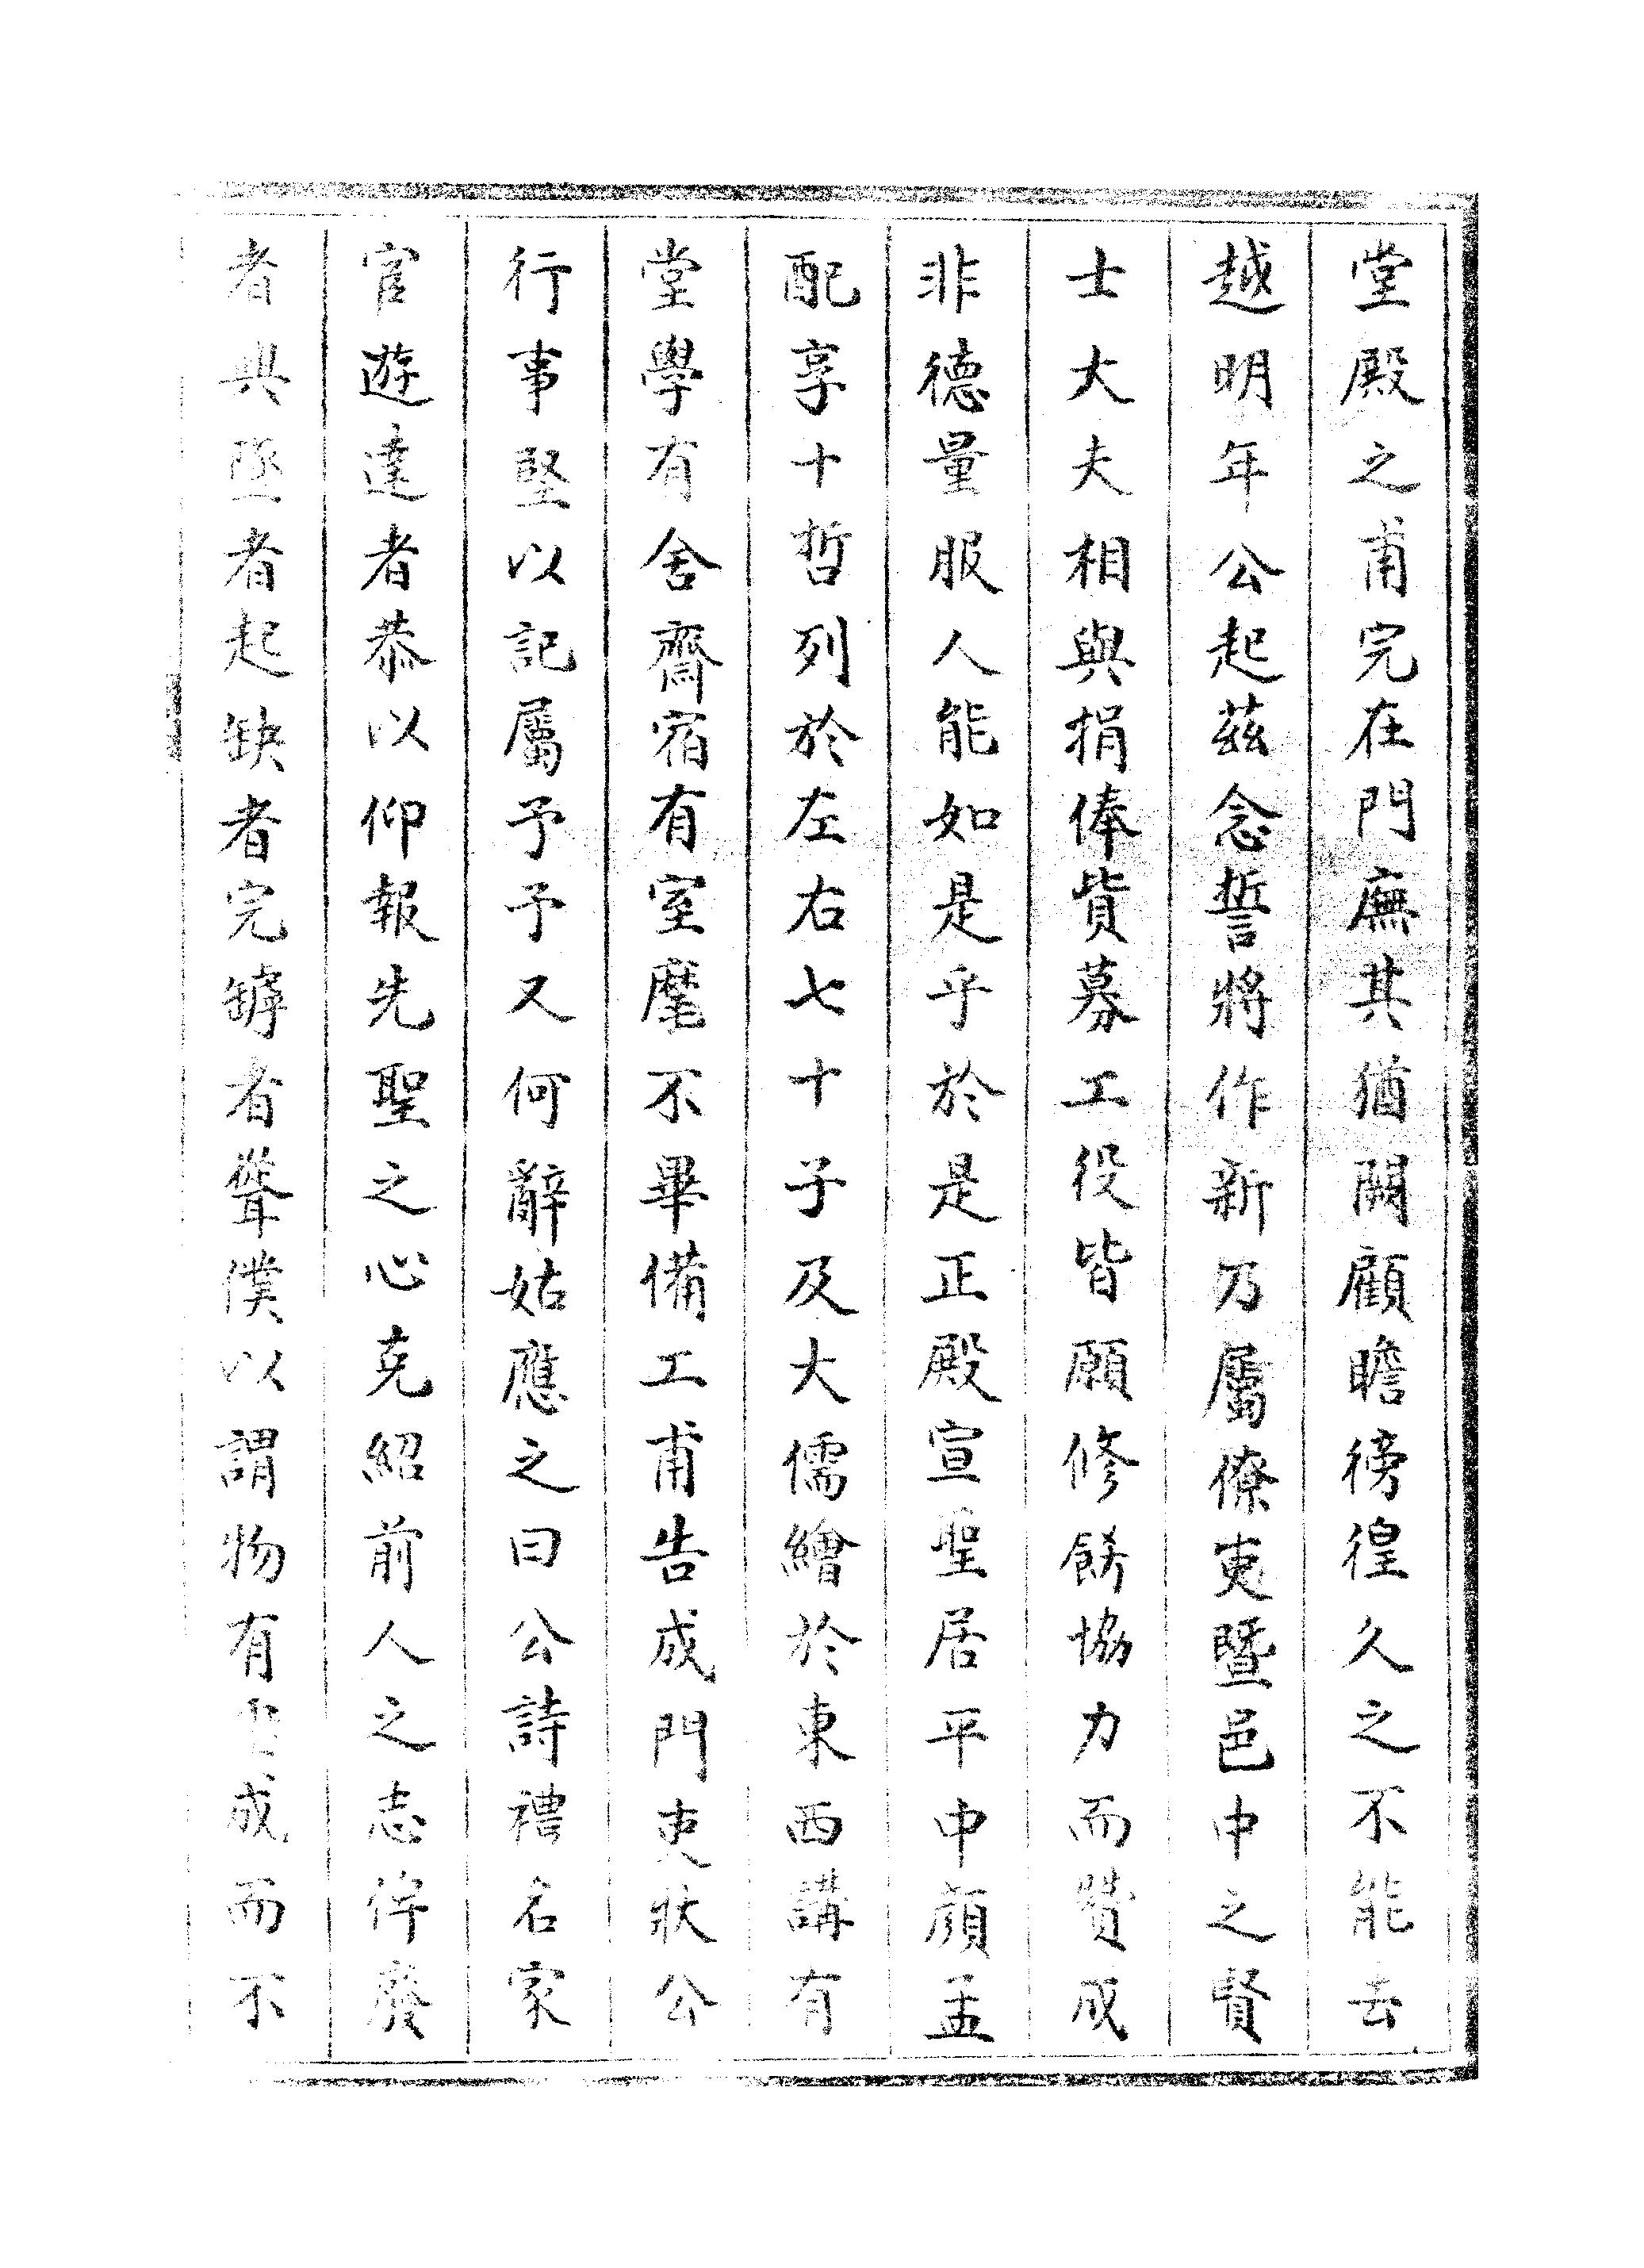 堂殿之甫完在門廡其猶闕顧瞻徬徨久之不能去
越明年公起茲念誓將作新乃屬僚吏暨邑中之賢
士大夫相與捐俸貲募工役皆願修餙協力而贊成
非德量服人能如是乎於是正殿宣聖居平中顔孟
配享十哲列於左右七十子及大儒繪於東西講有
堂學有舍齋宿有室麾不畢備工甫告成門吏狀公
行事堅以記屬予予又何辭姑應之曰公詩禮名家
官遊達者恭以仰報先聖之心克紹前人之志侔廢
者興墜者起缺者完罅者聳僕以謂物有成而不